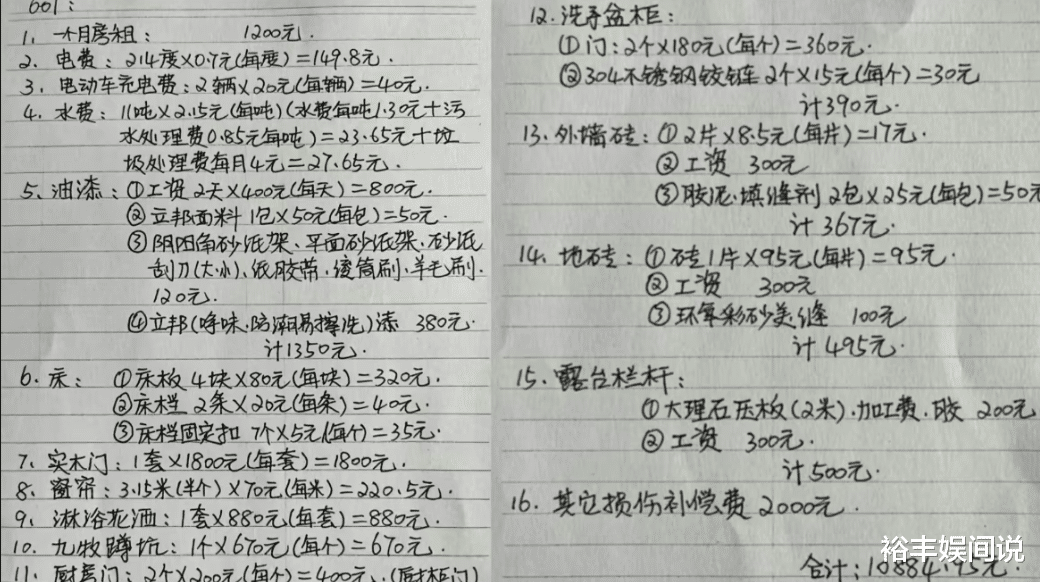 601:
1、一个月房租: 1200元.
2、电费:214度×0.7元(每度)=149.8元.
3、电动车充电费:2辆×20元(每辆)=40元.
4、水费:11吨×2.15元(每吨)(水费每吨1.30元十污
水处理费0.85元每吨)=23.65元十垃
圾处理费每月4元=27.65元.
5、油漆:①工资2天×400元(每天)=800元.
②立邦面料1包×50元(每包)=50元.
③阴阳角砂纸架、平面砂纸架、砂纸
刮刀(大小)、纸胶带、滚筒刷、羊毛刷.
120元.
④立邦(净味.防潮易擦洗)漆 380元.
计1350元.
6、床: ①床板4块×80元(每块)=320元.
②床档2条×20元(每条)=40元.
③床档固定扣 7个×5元(每个)=35元.
7、实木门:1套×1800元(每套)=1800元.
8、窗帘:3.15米(半个)×70元(每米)=220.5元.
9、淋浴花洒:1套×880元(每套)=880元.
10、九牧蹲坑:1个×670元(每个)=670元.
11、厨房门:2个×200元(每个)=400元.(厨柜门)
12.洗手盆柜:
①门:2个×180元(每个)=360元.
②304不锈钢铰链2个×15元(每个)=30元
计390元.
13、外墙砖:①2片×8.5元(每片)=17元.
②工资 300元
③胶泥.填缝剂2包×25元(每包)=50元
计367元.
14、地砖:①砖1片×95元(每片)=95元.
②工资 300元
③环氧彩砂美缝 100元
计495元.
15、露台栏杆:
①大理石压板(2米).加工费.胶 200元
②工资 300元.
计500元.
16、其它损伤补偿费2000元.
合计:10884.95元.
裕丰娱间说